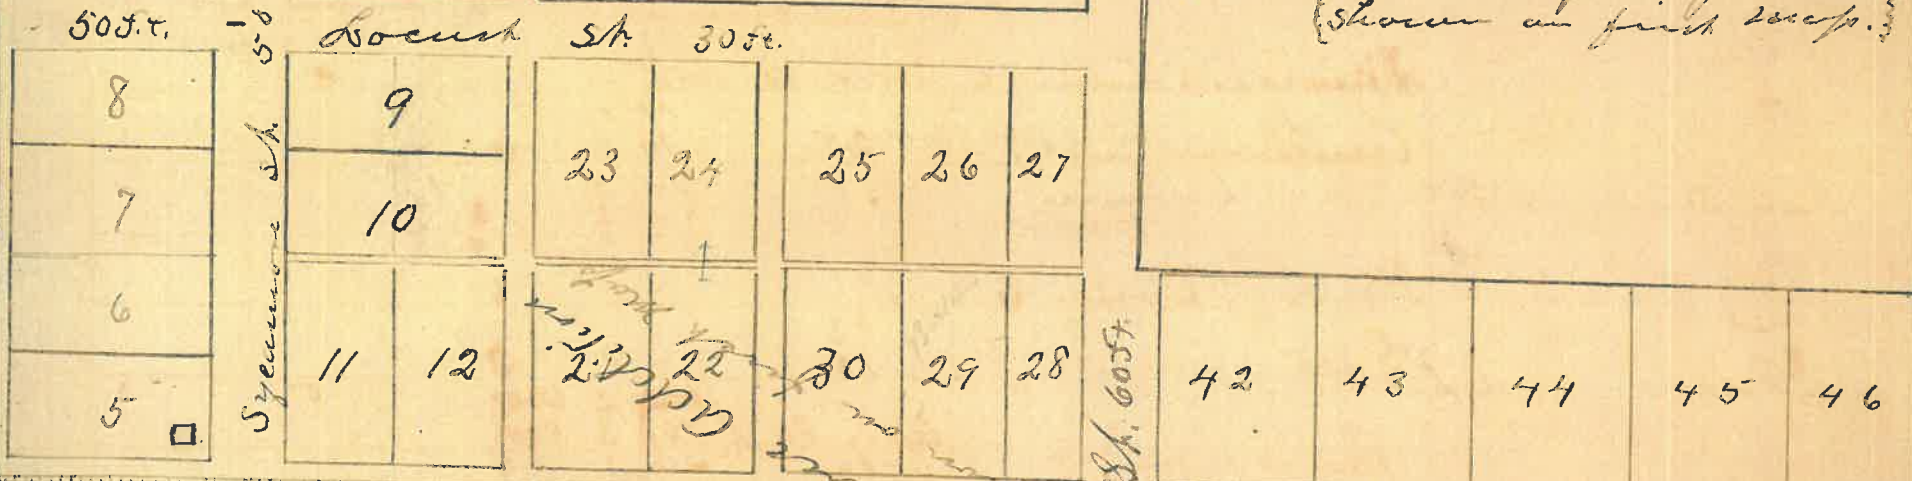 50 Ft. Locust St. 30 Ft.
(Shown on first map.)
Sycamore St. 50
8
7
6
5
9
10
11 12
23 24
25 26 27
21 22
30 29 28
St. 60 Ft.
42 43 44 45 46